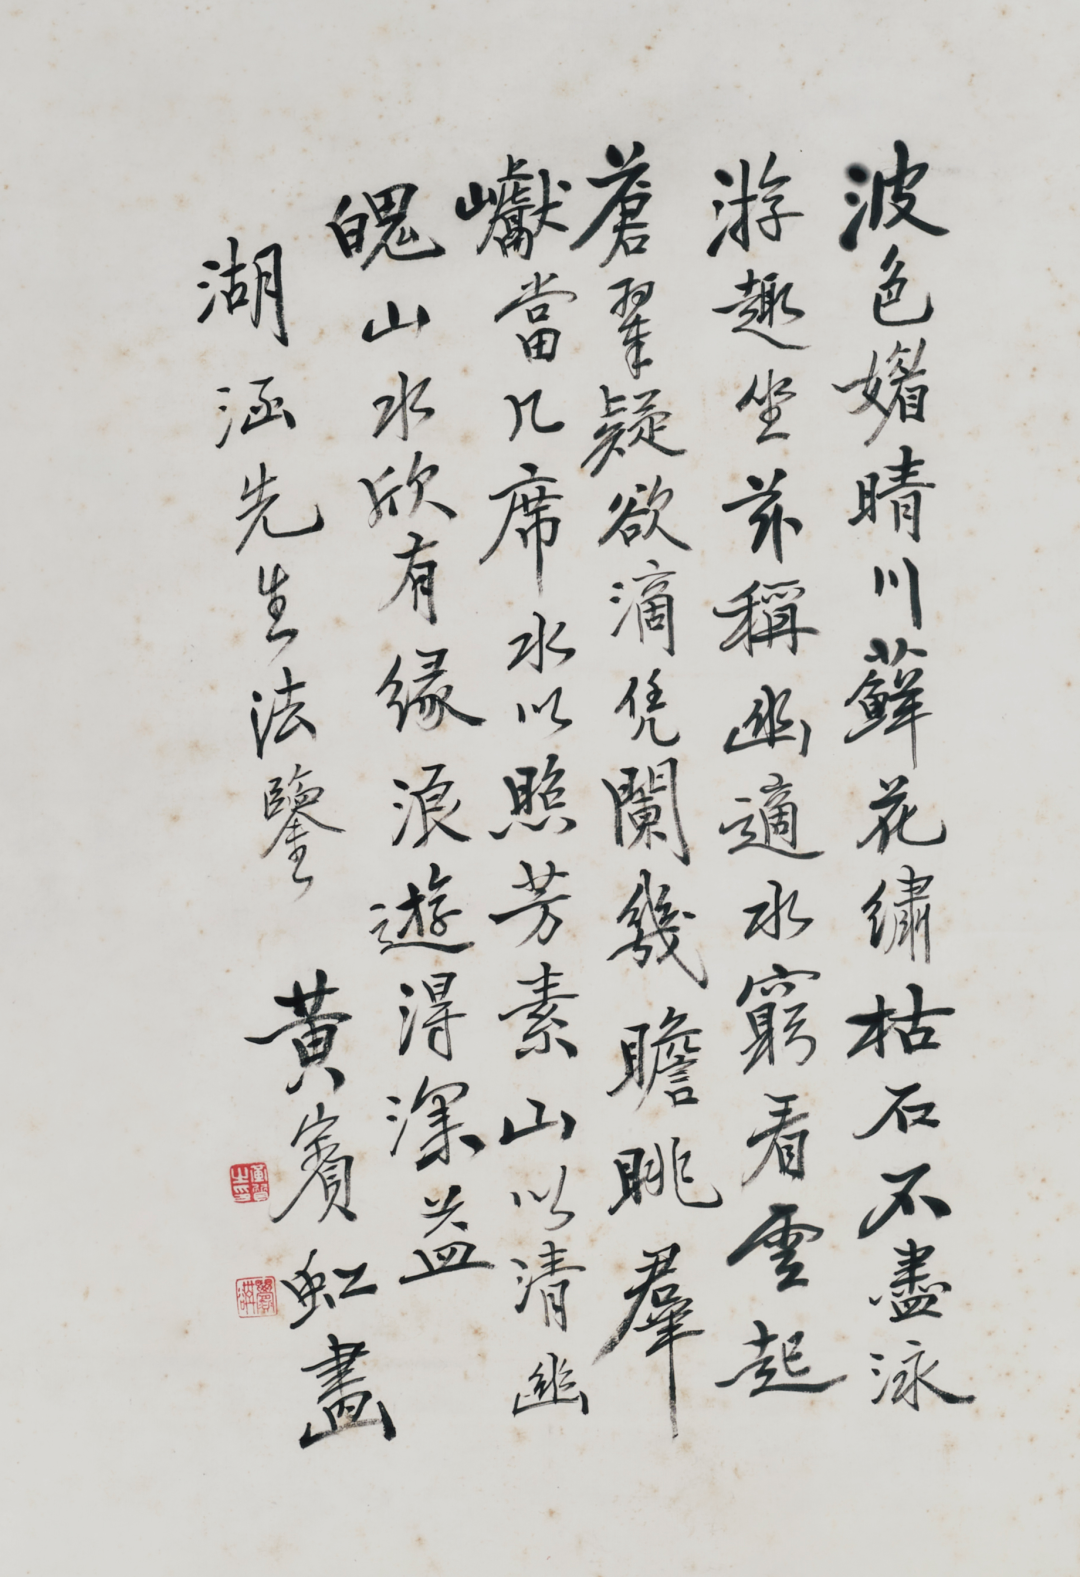 波色媚晴川蘚花繡枯石不盡泳
游趣坐茲稱幽適水窮看雲起
蒼翠疑欲滴凭闌幾瞻眺羣
巘當几席水以照芳素山以清幽
魄山水欣有緣浪遊得深益
湖涵先生法鑒 黃賓虹畫